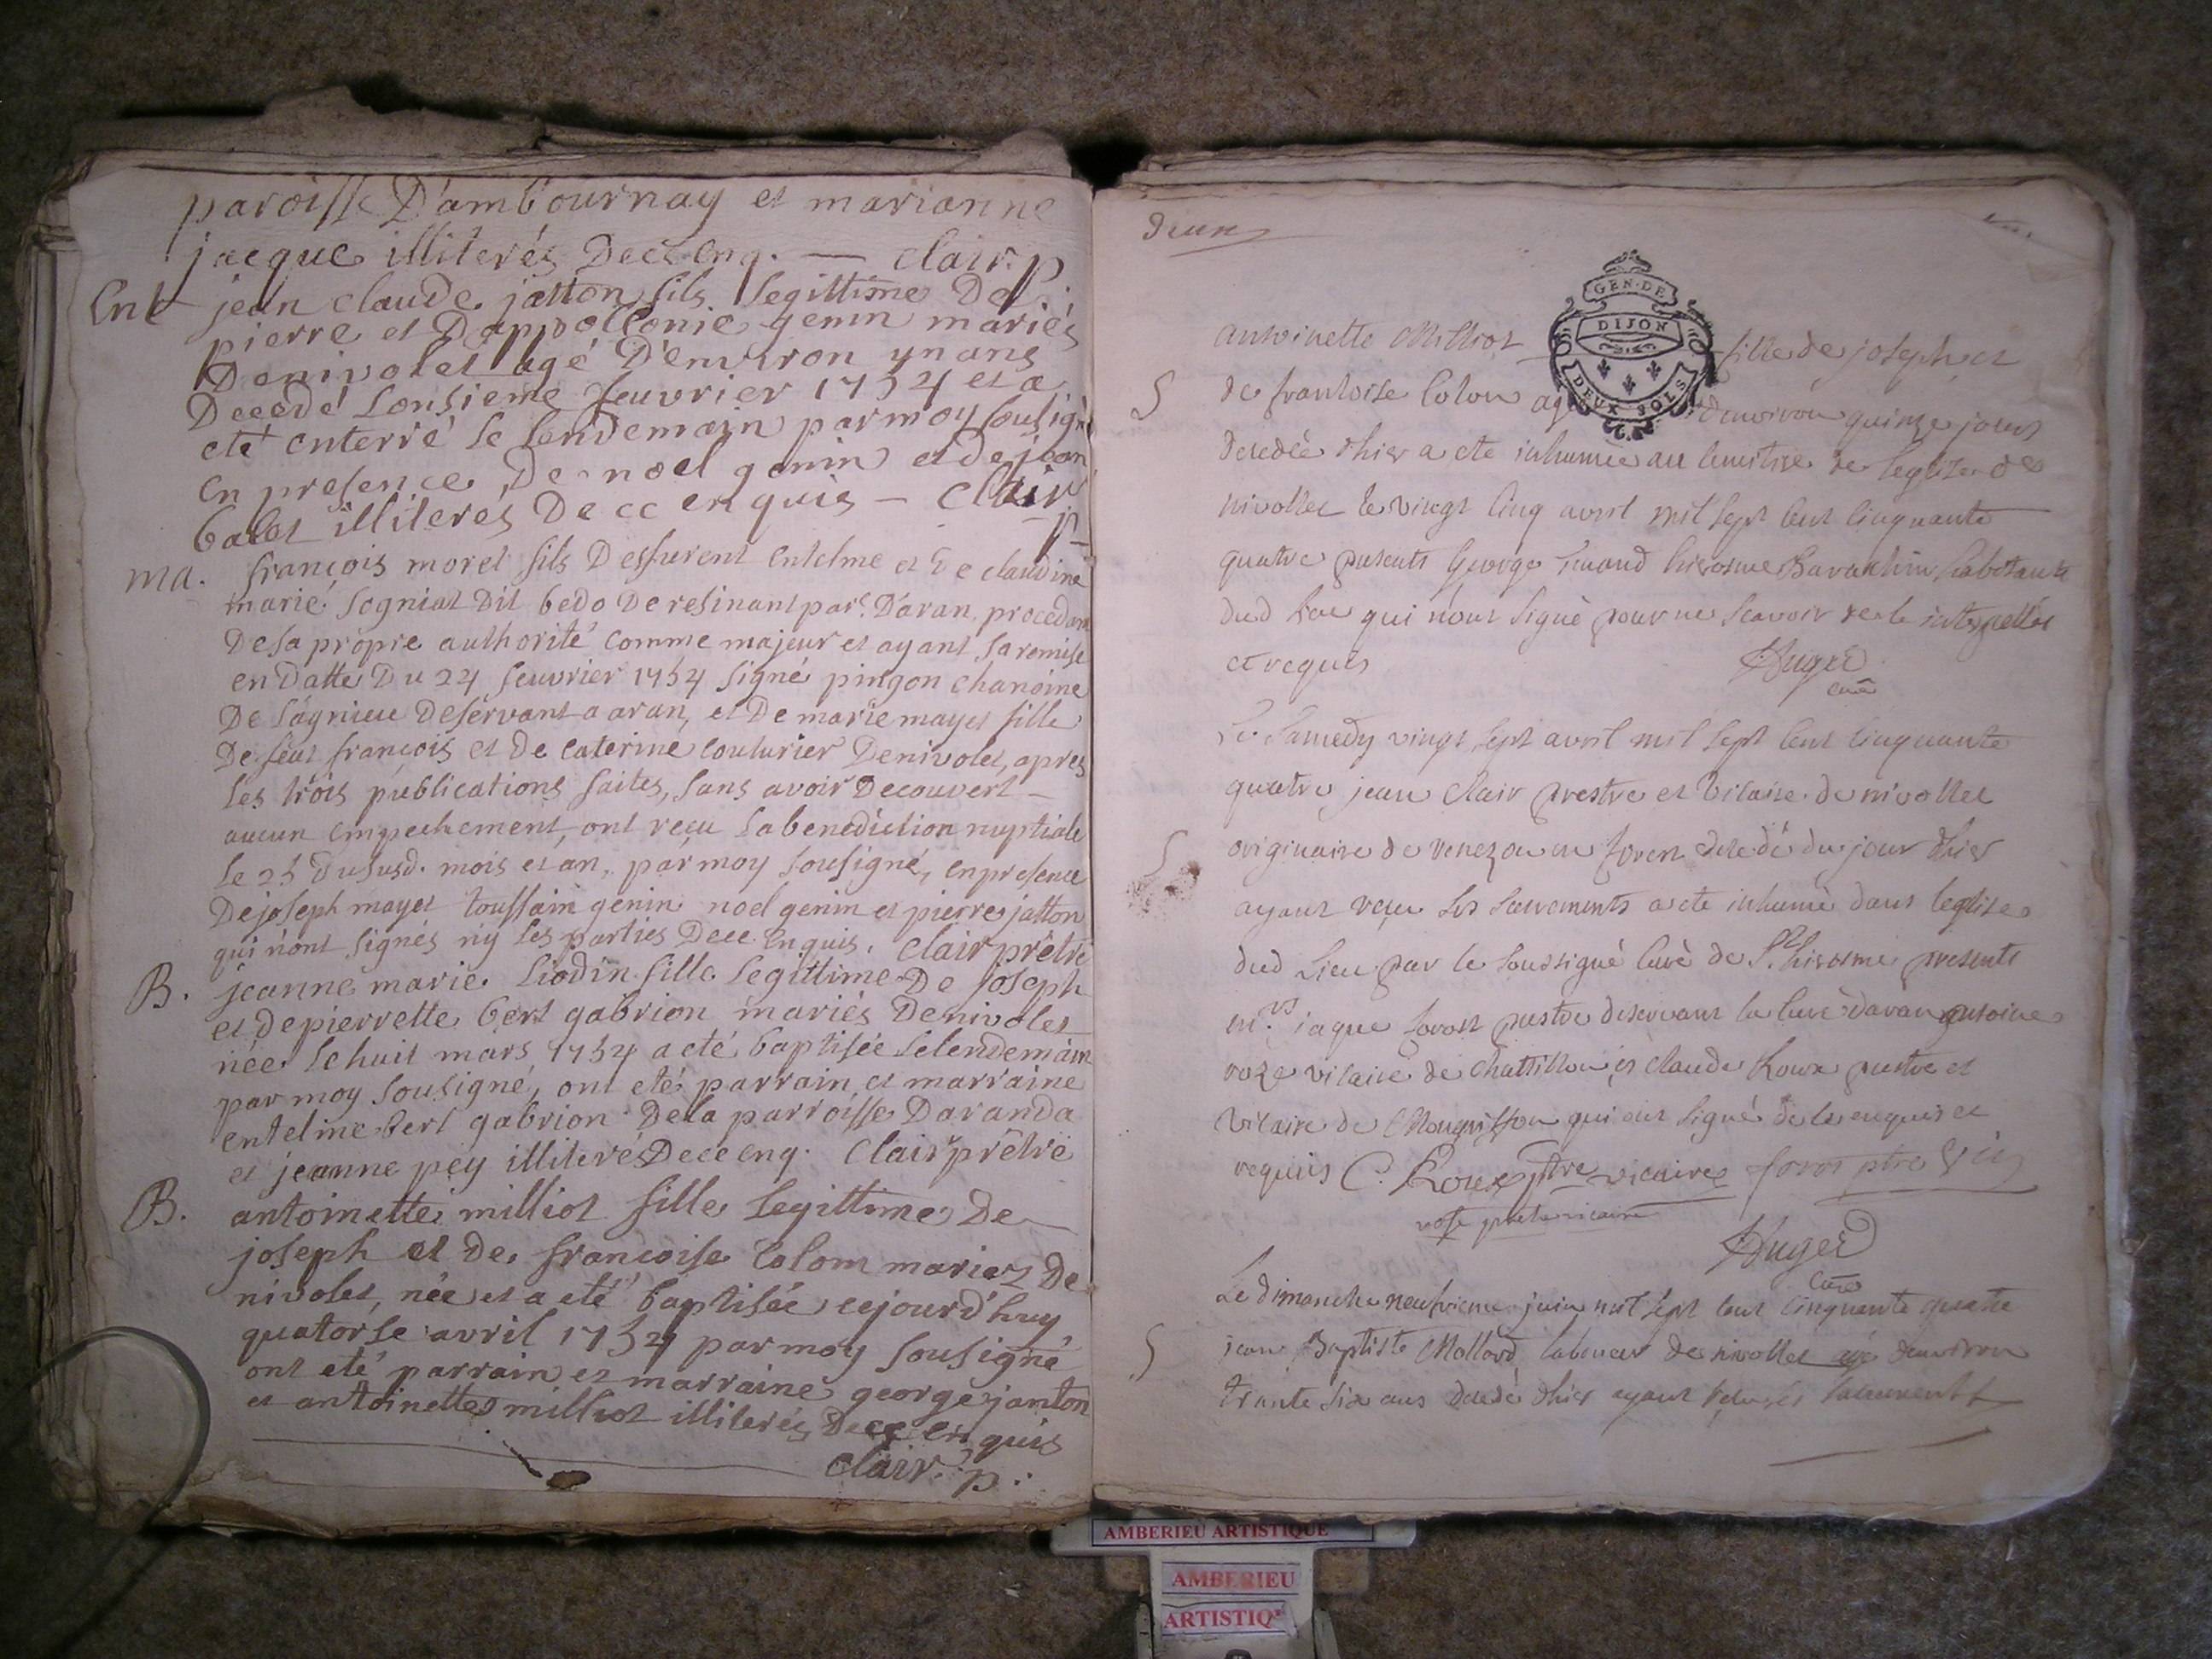 paroisse D'ambournay et marianne
jacque illiterés Dece enq. — clair. p
Ent jean claude jatton fils legittime De
pierre et D'appollonie genin mariés
De nivolet agé D'environ yn ans
Decedé L'onsieme feuvrier 1754 et a
eté enterré le lendemain par moy sousigné
en presence De noel genin et de jean
balet illiterés De ce enquis — clair
p
ma. françois morel fils Deffurent entelme et De claudine
marié sogniat dit bedo De resinant par. D'aran, procedant
De sa propre authorité comme majeur et ayant sa remise
en Datte Du 24 feuvrier 1754 signé pingon chanoine
De lagnieu Deservant a aran, et De marie mayet fille
De feut françois et de caterine couturier De nivolet, apres
les trois publications faites, sans avoir Decouvert
aucun empechement, ont reçu la benediction nuptiale
le 25 Du susd. mois et an, par moy sousigné, en presence
De joseph mayet toussain genin noel genin et pierre jatton
qui n'ont signés ny les parties Dece enquis. clair prêtre
B. jeanne marie liodin fille legittime De joseph
et de pierrette bert gabrion mariés De nivolet
née le huit mars 1754 a eté baptisée le lendemain
par moy sousigné, ont eté parrain et marraine
entelme bert gabrion De la parroisse D'aranda
et jeanne pey illiterés Dece enq. clair prêtre
B. antoinette milliot fille legittime De
joseph et de francoise colom mariez De
nivolet, née et a eté baptisée cejourd'huy
quatorse avril 1754 par moy sousigné
ont eté parrain et marraine george janton
et antoinette milliot illiterés Dece enquis
clair. p.
deux
GEN·DE
DIJON
DEUX SOLS
antoinette Milliot fille de joseph et
S de francoise Colon agée d'environ quinze jours
decedée d'hier a ete inhumée au cimitire de leglise de
nivollet le vingt cinq avril mil sept cent cinquante
quatre presents George hierosme habitants
dud lieu qui n'ont signé pour ne scavoir de ce interpellés
et requis Auger
curé
Le Samedy vingt sept avril mil sept cent cinquante
quatre jean Clair prestre et Vicaire de nivollet
S originaire de en forest decedé du jour d'hier
ayant reçu les sacrements a ete inhumé dans leglise
dud Lieu par le soussigné Curé de St. hierosme presents
jaque forest prestre deservant la Cure d'aran antoine
roze vicaire de Chattillon et Claude Roux prestre et
Vicaire de qui ont signé de ce enquis et
requis C. Roux ptre vicaire ptre
rose prêtre vicaire
Auger
Curé
Le dimanche neufvieme juin mil sept cent cinquante quatre
S jean Baptiste Mollard laboureur de nivollet agé denviron
trente six ans decedé d'hier ayant
AMBERIEU ARTISTIQUE
AMBERIEU
ARTISTIQe